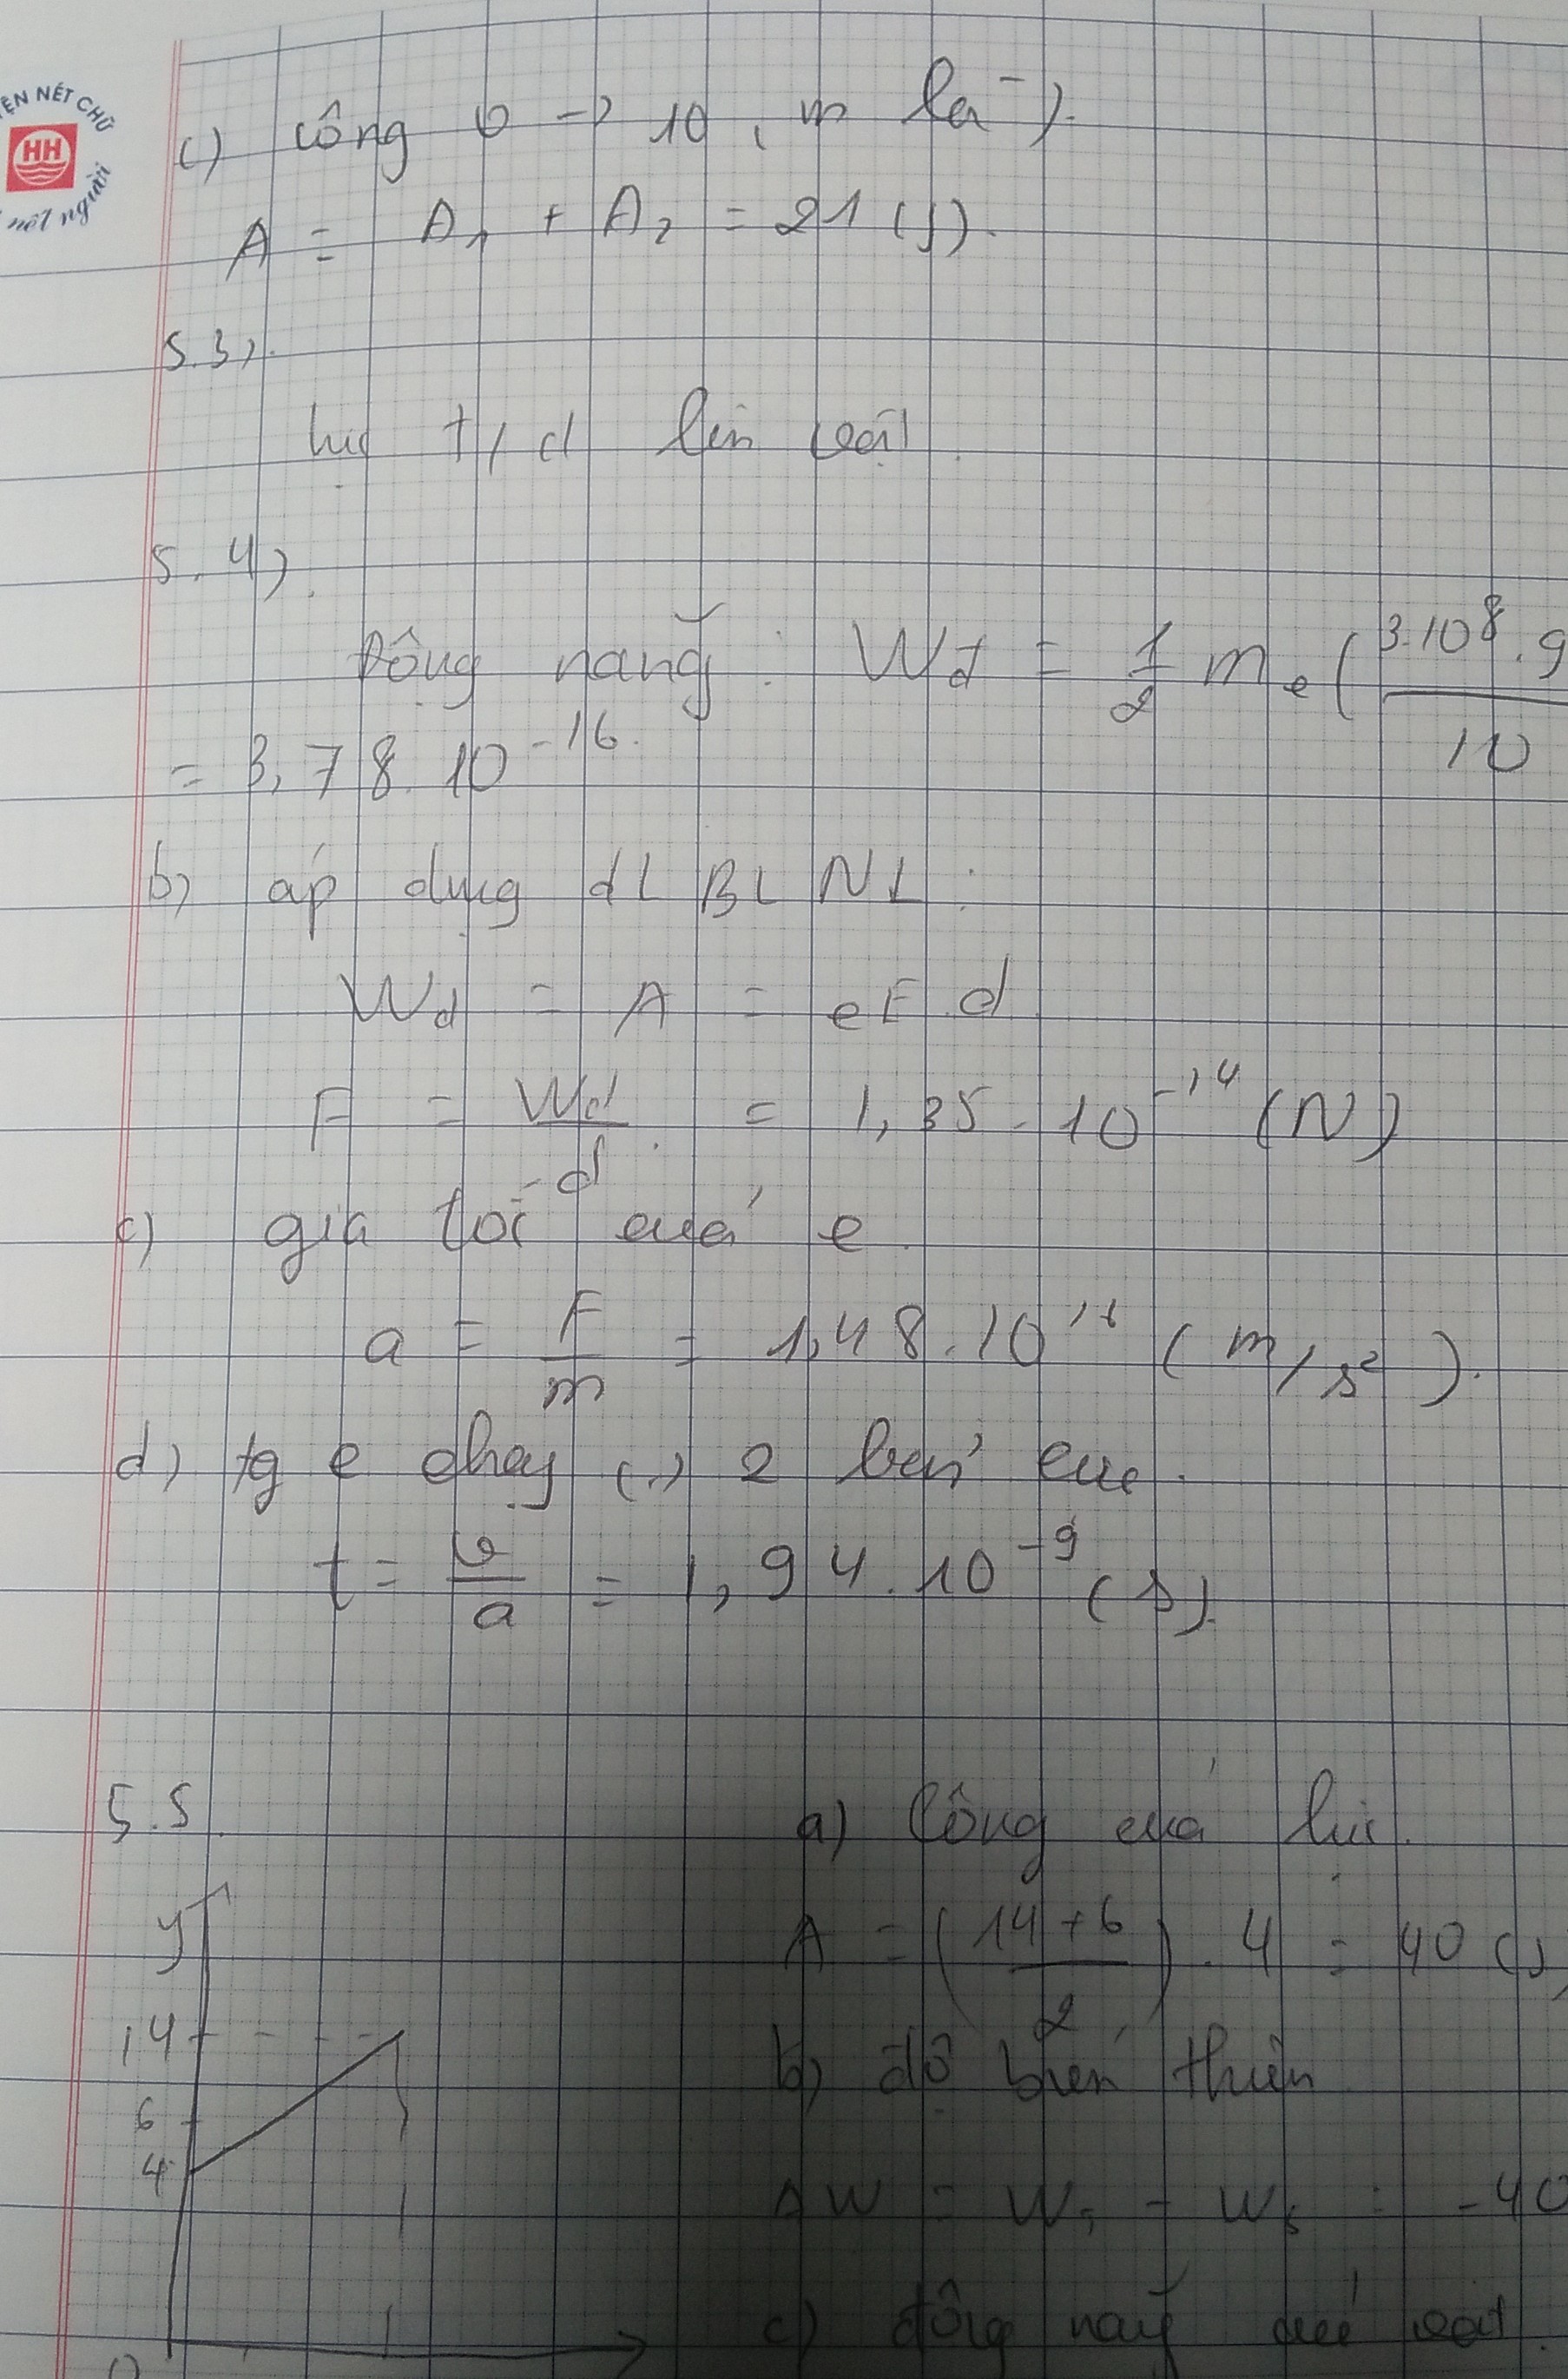 ỆN NÉT CHỮ
HH
nết người
c) Công 0 → 10, m là).
A = A₁ + A₂ = 21 (J).
5.3).
lực t/d lên vật.
5.4).
Động năng: Wđ = 1/2 mₑ (3.10⁸.9/10
= 3,78.10⁻¹⁶.
b) áp dụng đL BL NL:
Wđ = A = eE.d
F = Wđ/d = 1,35.10⁻¹⁴ (N)
c) gia tốc của e.
a = F/m = 1,48.10¹⁶ (m/s²).
d) tg e chạy (.) 2 bản cực.
t = v/a = 1,94.10⁻⁹ (s).
5.5.
a) Công của lực.
A = (14+6/2).4 = 40 (J)
b) độ biến thiên
ΔW = - = -40
c) động năng của vật.
y
14
6
4
0